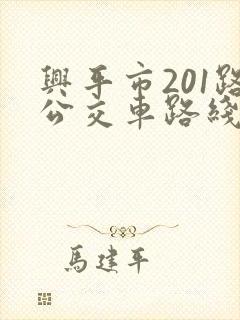 興平市201路
公交車路綫
馬建平